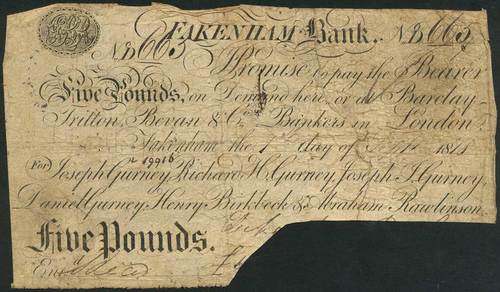 FAKENHAM Bank.
No B665 No B665
I Promise to pay the Bearer
Five Pounds, on Demand here, or at Barclay
Tritton, Bevan & Co. Bankers in London.
Fakenham the 1 day of 18
For Joseph Gurney, Richard H. Gurney, Joseph J. Gurney
Daniel Gurney, Henry Birkbeck & Abraham Rawlinson.
Five Pounds.